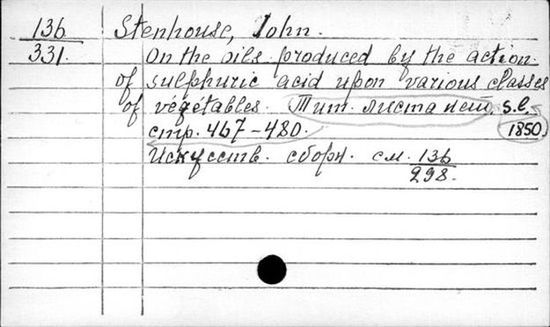 136 Stenhouse, John.
331. On the oils produced by the action
of sulphuric acid upon various classes
of vegetables. Тит. листа нет. s.l.
стр. 467-480. 1850.
Искусств. сборн. см. 136
298.